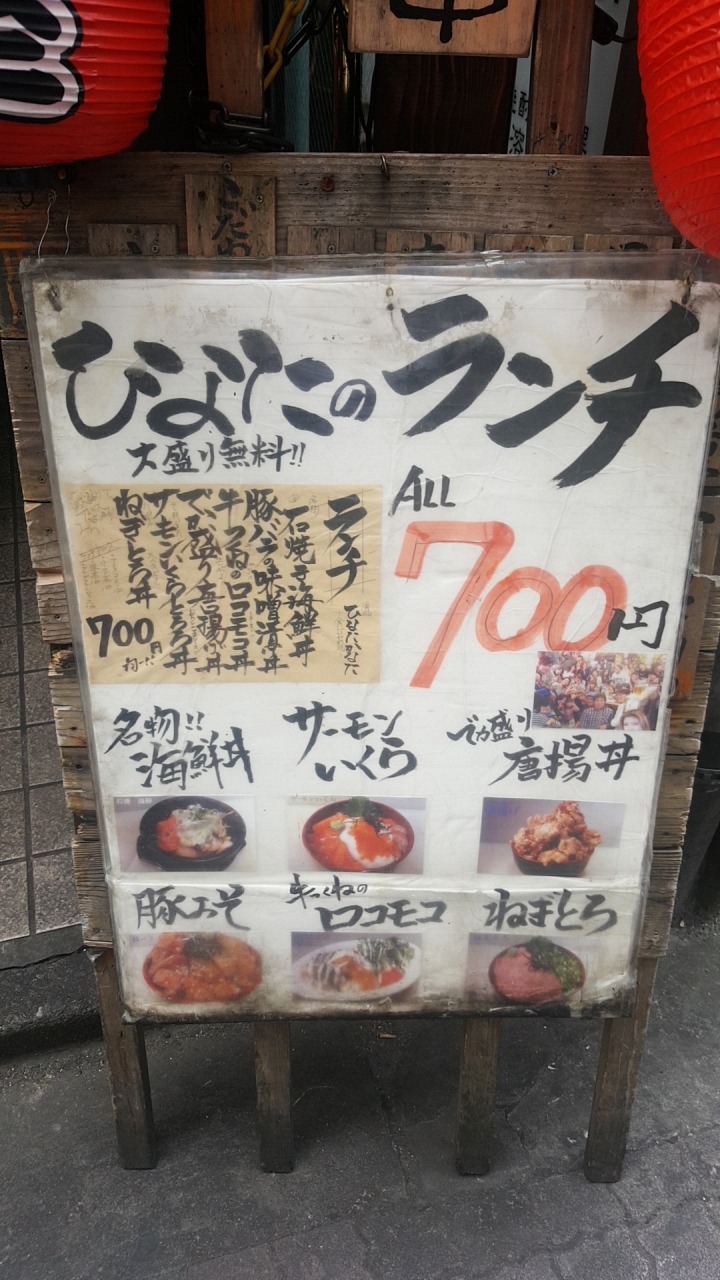 ひなたのランチ
大盛り無料!!
ALL
700円
ランチ
石焼き海鮮丼
豚バラの味噌漬丼
牛つくねのロコモコ丼
でか盛り唐揚げ丼
サーモンいくらとろろ丼
ねぎとろ丼
700円
名物!!
海鮮丼
サーモン
いくら
デカ盛り
唐揚丼
豚みそ
牛つくねの
ロコモコ
ねぎとろ